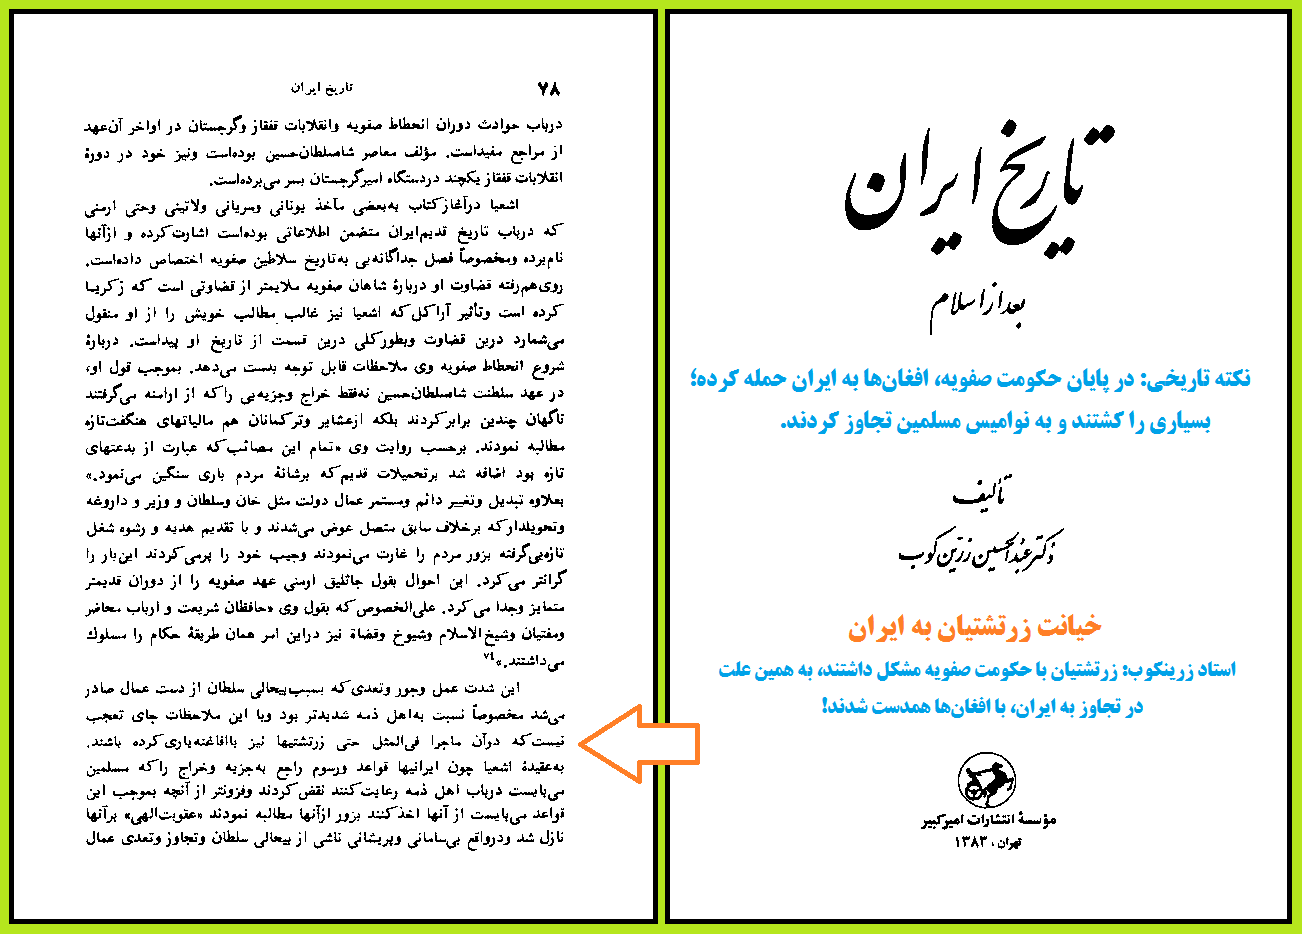 تاریخ ایران
بعد از اسلام
نکته تاریخی: در پایان حکومت صفویه، افغان‌ها به ایران حمله کرده؛
بسیاری را کشتند و به نوامیس مسلمین تجاوز کردند.
تألیف
دکتر عبدالحسین زرین کوب
خیانت زرتشتیان به ایران
استاد زرینکوب: زرتشتیان با حکومت صفویه مشکل داشتند، به همین علت
در تجاوز به ایران، با افغان‌ها همدست شدند!
مؤسسهٔ انتشارات امیرکبیر
تهران، ۱۳۸۳
۷۸
تاریخ ایران
درباب حوادث دوران انحطاط صفویه وانقلابات قفقاز وگرجستان در اواخر آن‌عهد
از مراجع مفیداست. مؤلف معاصر شاه‌سلطان‌حسین بوده‌است ونیز خود در دورهٔ
انقلابات قفقاز یکچند دردستگاه امیرگرجستان بسر می‌برده‌است.
اشعیا درآغازکتاب به‌بعضی مآخذ یونانی وسریانی ولاتینی وحتی ارمنی
که درباب تاریخ قدیم‌ایران متضمن اطلاعاتی بوده‌است اشارت‌کرده و ازآنها
نام‌برده ومخصوصاً فصل جداگانه‌یی به‌تاریخ سلاطین صفویه اختصاص داده‌است.
روی‌هم‌رفته قضاوت او دربارهٔ شاهان صفویه ملایمتر از قضاوتی است که زکریا
کرده است وتأثیر آراکل‌که اشعیا نیز غالب مطالب خویش را از او منقول
می‌شمارد درین قضاوت وبطورکلی درین قسمت از تاریخ او پیداست. دربارهٔ
شروع انحطاط صفویه وی ملاحظات قابل توجه بدست می‌دهد. بموجب قول او،
در عهد سلطنت شاه‌سلطان‌حسین نه‌فقط خراج وجزیه‌یی راکه از ارامنه می‌گرفتند
ناگهان چندین برابرکردند بلکه ازعشایر وترکمانان هم مالیاتهای هنگفت‌تازه
مطالبه نمودند. برحسب روایت وی «تمام این مصائب‌که عبارت از بدعتهای
تازه بود اضافه شد برتحمیلات قدیم‌که برشانهٔ مردم باری سنگین می‌نمود.»
بعلاوه تبدیل وتغییر دائم ومستمر عمال دولت مثل خان وسلطان و وزیر و داروغه
وتحویلدارکه برخلاف سابق متصل عوض می‌شدند و با تقدیم هدیه و رشوه شغل
تازه‌یی‌گرفته بزور مردم را غارت می‌نمودند وجیب خود را پرمی‌کردند این‌بار را
گرانتر می‌کرد. این احوال بقول جاثلیق ارمنی عهد صفویه را از دوران قدیمتر
متمایز وجدا می‌کرد. علی‌الخصوص‌که بقول وی «حافظان شریعت و ارباب محاضر
ومفتیان وشیخ‌الاسلام وشیوخ وقضاة نیز دراین امر همان طریقهٔ حکام را مسلوک
می‌داشتند.»۷۴
این شدت عمل وجور وتعدی‌که بسبب‌بیحالی سلطان از دست عمال صادر
می‌شد مخصوصاً نسبت به‌اهل ذمه شدیدتر بود وبا این ملاحظات جای تعجب
نیست‌که درآن ماجرا فی‌المثل حتی زرتشتیها نیز باافاغنه‌یاری‌کرده باشند.
به‌عقیدهٔ اشعیا چون ایرانیها قواعد ورسوم راجع به‌جزیه وخراج راکه مسلمین
می‌بایست درباب اهل ذمه رعایت‌کنند نقض‌کردند وفزونتر از آنچه بموجب این
قواعد می‌بایست از آنها اخذکنند بزور ازآنها مطالبه نمودند «عقوبت‌الهی» برآنها
نازل شد ودرواقع بی‌سامانی وپریشانی ناشی از بیحالی سلطان وتجاوز وتعدی عمال